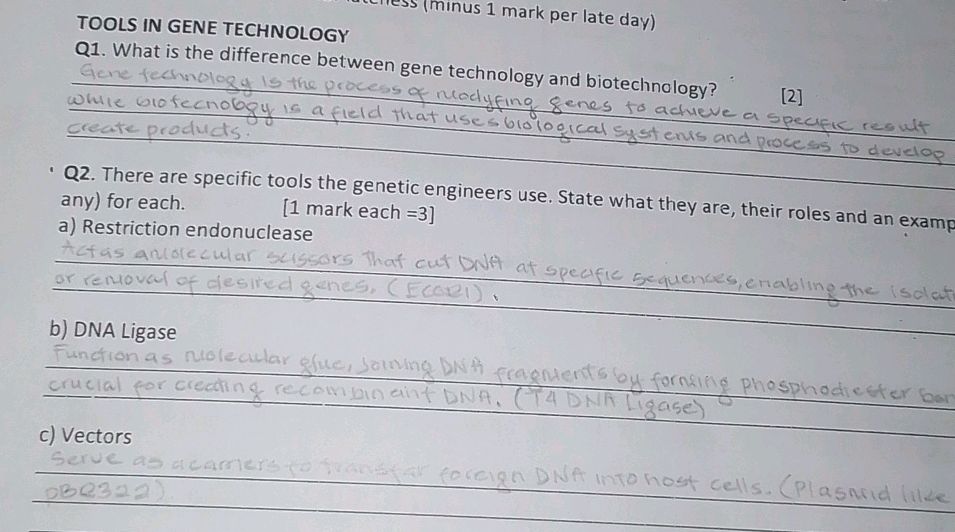 (minus 1 mark per late day)
TOOLS IN GENE TECHNOLOGY
Q1. What is the difference between gene technology and biotechnology? [2]
Gene technology is the process of modyfing genes to achieve a specific result
while biotecnology is a field that uses biological systems and process to develop
create products.
Q2. There are specific tools the genetic engineers use. State what they are, their roles and an examp
any) for each. [1 mark each =3]
a) Restriction endonuclease
Act as a molecular scissors that cut DNA at specific sequences, enabling the isolat
or removal of desired genes. (EcoRI).
b) DNA Ligase
Function as molecular glue, joining DNA fragments by forming phosphodiester bon
crucial for creating recombinant DNA. (T4 DNA Ligase)
c) Vectors
Serve as a carriers to transfer foreign DNA into host cells. (Plasmid like
pBR322)